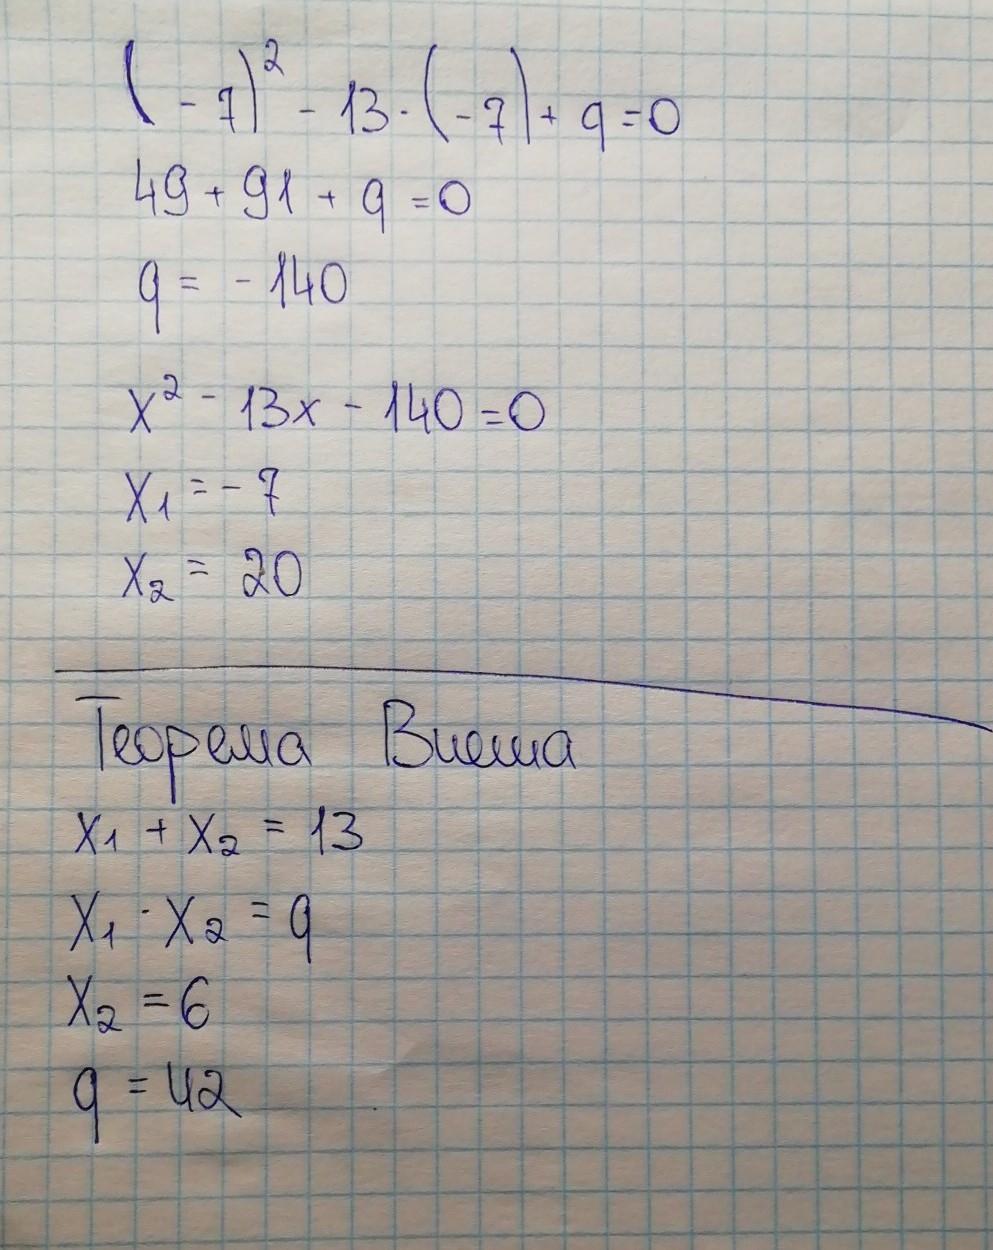 (-7)² - 13·(-7) + q = 0
49 + 91 + q = 0
q = -140
x² - 13x - 140 = 0
x₁ = -7
x₂ = 20
Теорема Виета
x₁ + x₂ = 13
x₁ · x₂ = q
x₂ = 6
q = 42